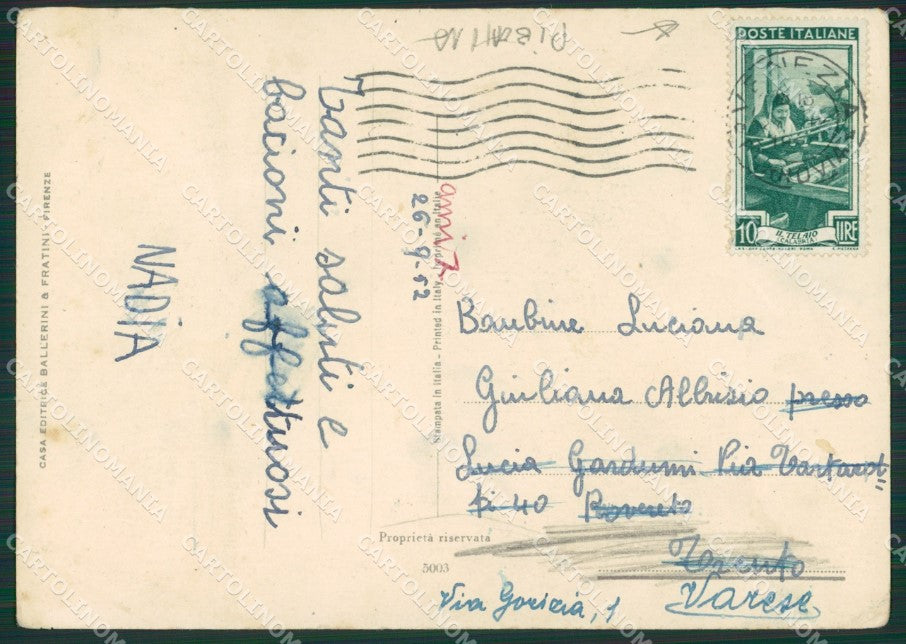 POSTE ITALIANE
10 LIRE
IL TELAIO
CALABRIA
VENEZIA
Tanti saluti e
bacioni affettuosi
NADIA
26-9-52
Bambine Luciana
Giuliana Albrisio presso
Lucia Gardumi Via Tartarot
n 40 Rovereto
Trento
Varese
Via Gorizia, 1
Proprietà riservata
5003
Stampata in Italia - Printed in Italy
CASA EDITRICE BALLERINI & FRATINI - FIRENZE
CARTOLINOMANIA